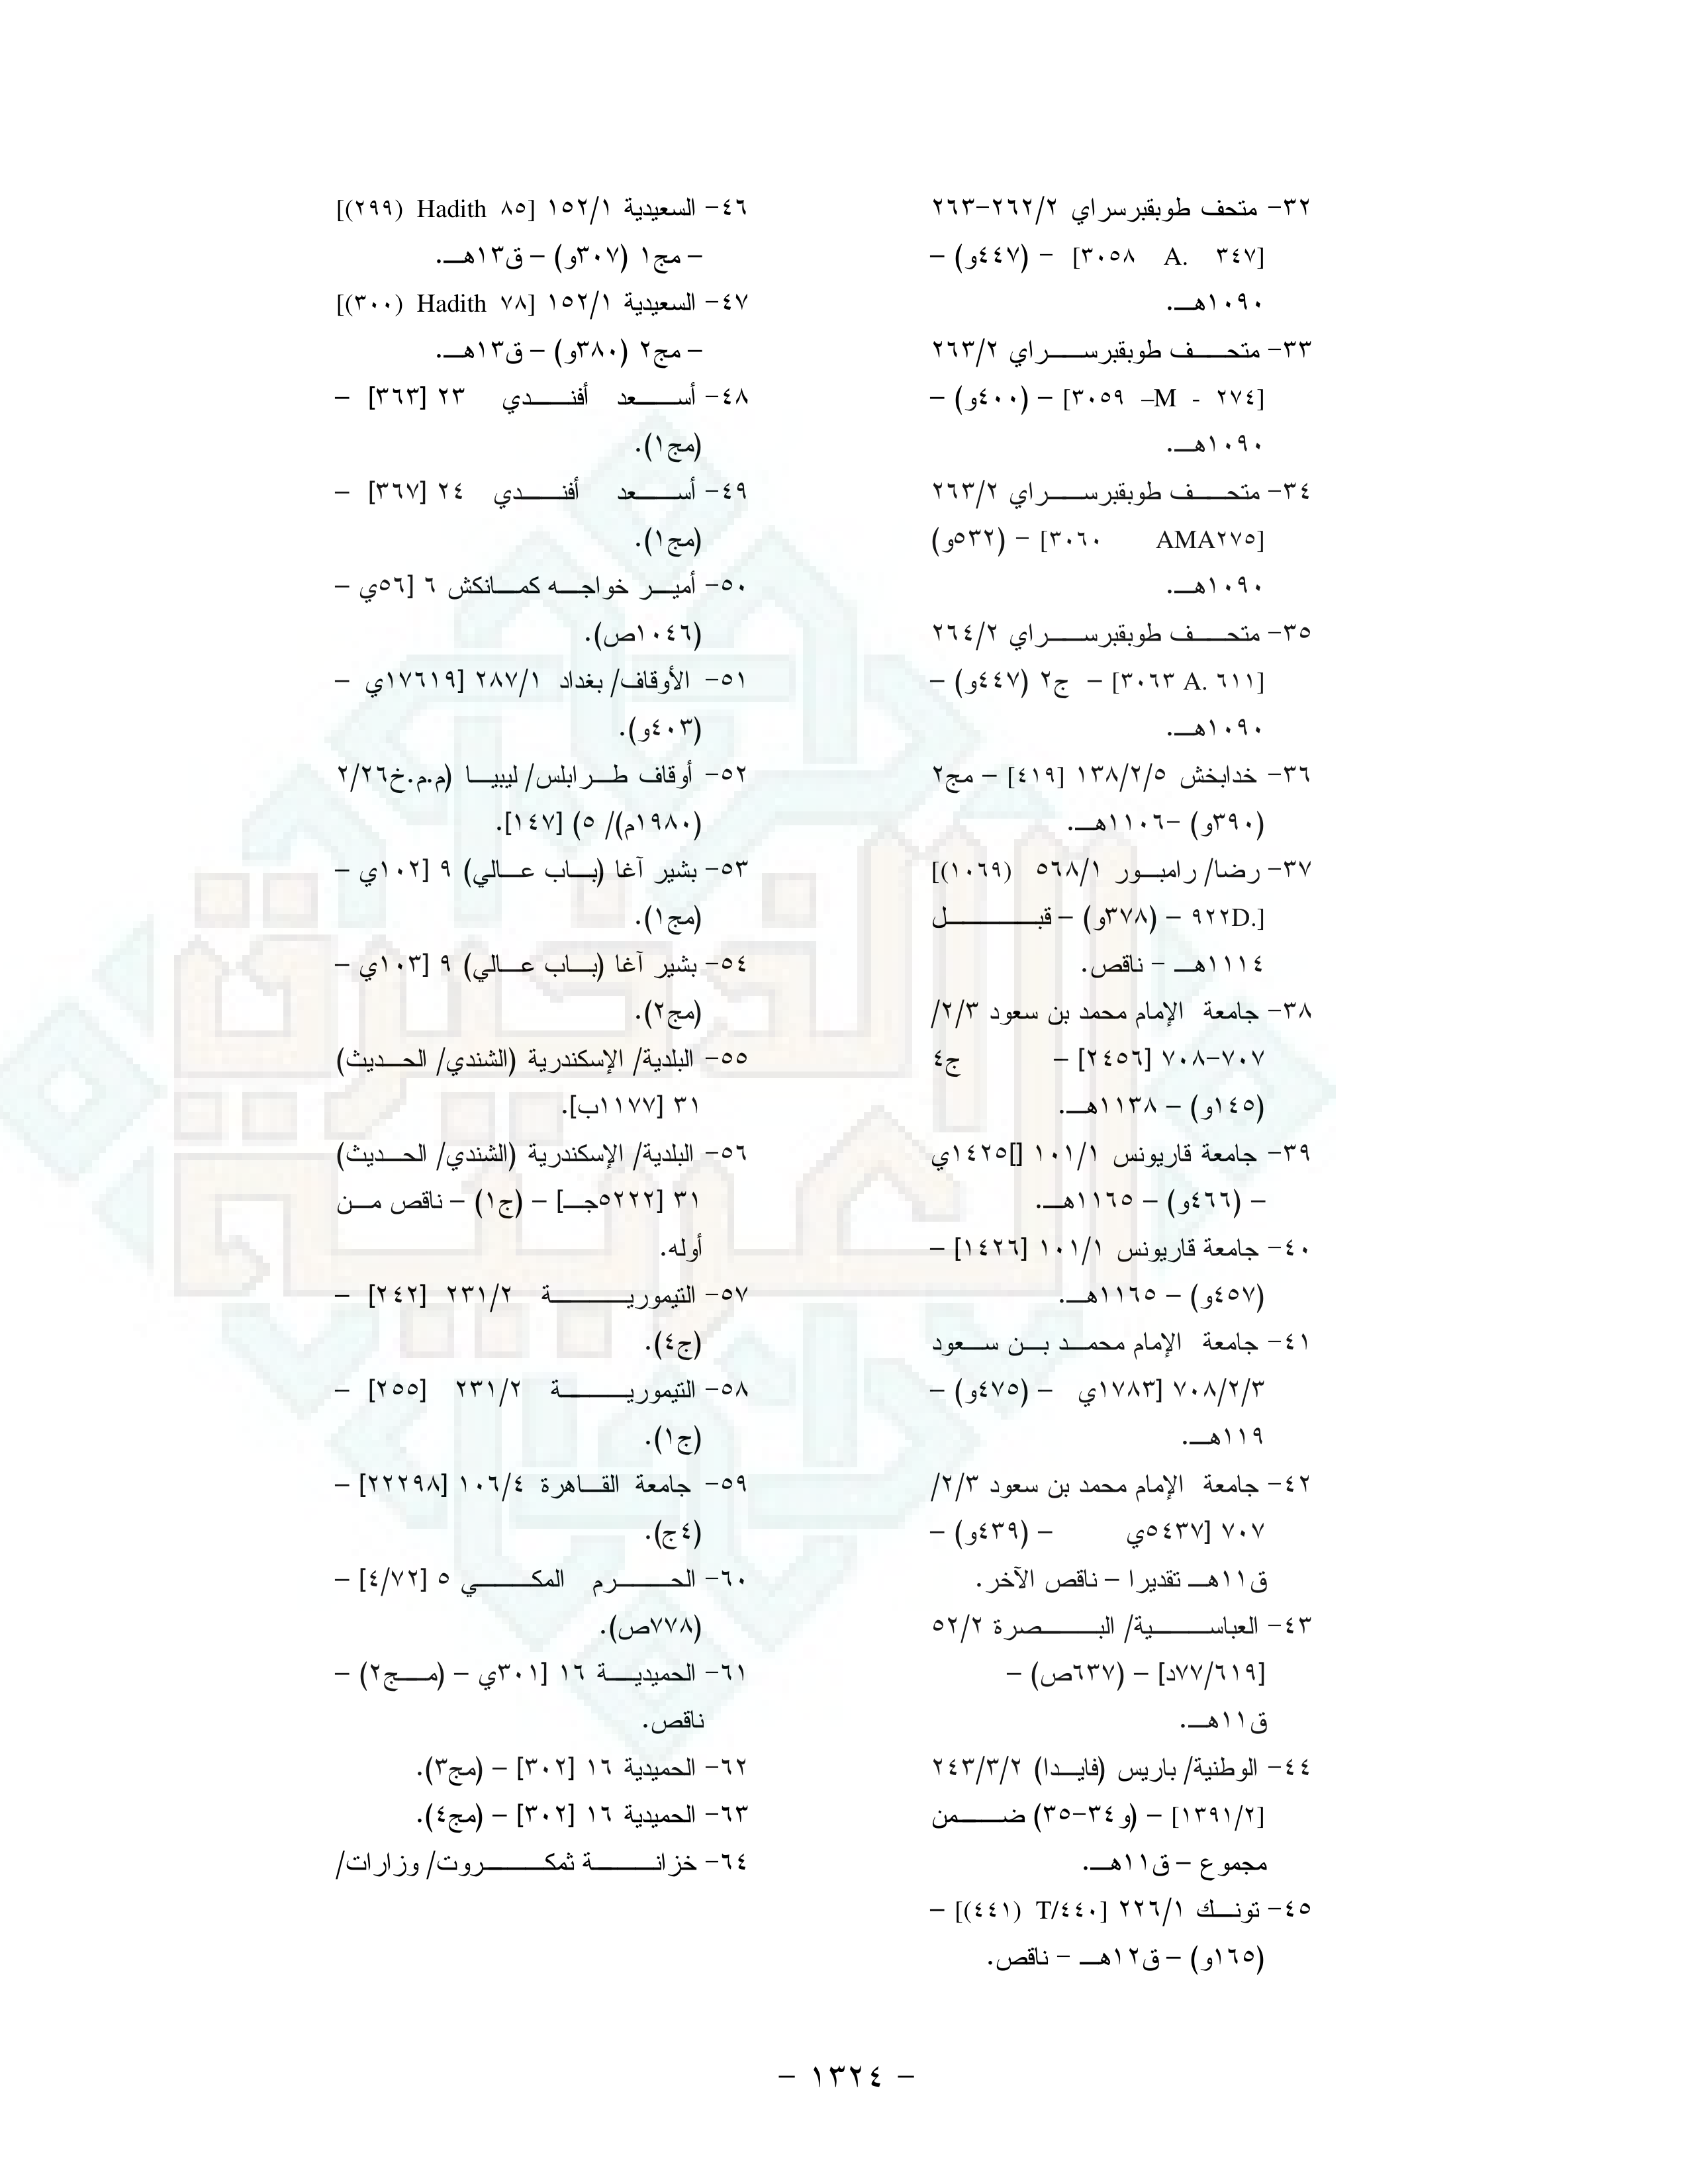 ٣٢- متحف طوبقبرسراي ٢٦٢/٢-٢٦٣
[٣٠٥٨ A. ٣٤٧] – (٤٤٧و) –
١٠٩٠هـ.
٣٣- متحف طوبقبرسراي ٢٦٣/٢
[٣٠٥٩ –M - ٢٧٤] – (٤٠٠و) –
١٠٩٠هـ.
٣٤- متحف طوبقبرسراي ٢٦٣/٢
[٣٠٦٠ AMA٢٧٥] – (٥٣٢و)
١٠٩٠هـ.
٣٥- متحف طوبقبرسراي ٢٦٤/٢
[٣٠٦٣ A. ٦١١] – ج٢ (٤٤٧و) –
١٠٩٠هـ.
٣٦- خدابخش ١٣٨/٢/٥ [٤١٩] – مج٢
(٣٩٠و) –١١٠٦هـ.
٣٧- رضا/ رامبور ٥٦٨/١ [(١٠٦٩)
٩٢٢D.] – (٣٧٨و) – قبل
١١١٤هـ – ناقص.
٣٨- جامعة الإمام محمد بن سعود ٢/٣/
٧٠٧-٧٠٨ [٢٤٥٦] – ج٤
(١٤٥و) – ١١٣٨هـ.
٣٩- جامعة قاريونس ١٠١/١ []١٤٢٥ي
– (٤٦٦و) – ١١٦٥هـ.
٤٠- جامعة قاريونس ١٠١/١ [١٤٢٦] –
(٤٥٧و) – ١١٦٥هـ.
٤١- جامعة الإمام محمد بن سعود
٧٠٨/٢/٣ [١٧٨٣ي – (٤٧٥و) –
١١٩هـ.
٤٢- جامعة الإمام محمد بن سعود ٢/٣/
٧٠٧ [٥٤٣٧ي – (٤٣٩و) –
ق١١هـ تقديرا – ناقص الآخر.
٤٣- العباسية/ البصرة ٥٢/٢
[٧٧/٦١٩د] – (٦٣٧ص) –
ق١١هـ.
٤٤- الوطنية/ باريس (فايدا) ٢٤٣/٣/٢
[١٣٩١/٢] – (و٣٤-٣٥) ضمن
مجموع – ق١١هـ.
٤٥- تونك ٢٢٦/١ [T/٤٤٠ (٤٤١)] –
(١٦٥و) – ق١٢هـ – ناقص.
٤٦- السعيدية ١٥٢/١ [٨٥ Hadith (٢٩٩)]
– مج١ (٣٠٧و) – ق١٣هـ.
٤٧- السعيدية ١٥٢/١ [٧٨ Hadith (٣٠٠)]
– مج٢ (٣٨٠و) – ق١٣هـ.
٤٨- أسعد أفندي ٢٣ [٣٦٣] –
(مج١).
٤٩- أسعد أفندي ٢٤ [٣٦٧] –
(مج١).
٥٠- أمير خواجه كمانكش ٦ [٥٦ي –
(١٠٤٦ص).
٥١- الأوقاف/ بغداد ٢٨٧/١ [١٧٦١٩ي –
(٤٠٣و).
٥٢- أوقاف طرابلس/ ليبيا (م.م.خ٢/٢٦
(١٩٨٠م)/ ٥) [١٤٧].
٥٣- بشير آغا (باب عالي) ٩ [١٠٢ي –
(مج١).
٥٤- بشير آغا (باب عالي) ٩ [١٠٣ي –
(مج٢).
٥٥- البلدية/ الإسكندرية (الشندي/ الحديث)
٣١ [١١٧٧ب].
٥٦- البلدية/ الإسكندرية (الشندي/ الحديث)
٣١ [٥٢٢٢جـ] – (ج١) – ناقص من
أوله.
٥٧- التيمورية ٢٣١/٢ [٢٤٢] –
(ج٤).
٥٨- التيمورية ٢٣١/٢ [٢٥٥] –
(ج١).
٥٩- جامعة القاهرة ١٠٦/٤ [٢٢٢٩٨] –
(٤ج).
٦٠- الحرم المكي ٥ [٤/٧٢] –
(٧٧٨ص).
٦١- الحميدية ١٦ [٣٠١ي – (مج٢) –
ناقص.
٦٢- الحميدية ١٦ [٣٠٢] – (مج٣).
٦٣- الحميدية ١٦ [٣٠٢] – (مج٤).
٦٤- خزانة ثمكروت/ وزارات/
– ١٣٢٤ –
الذخيرة
العربية